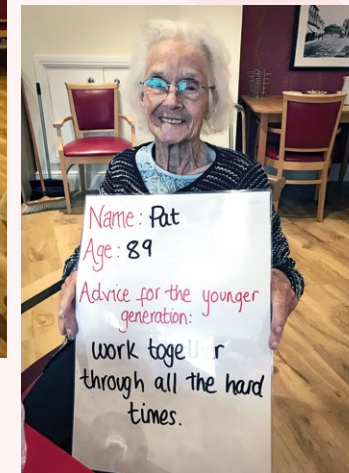 Name: Pat
Age: 89
Advice for the younger
generation:
work together
through all the hard
times.